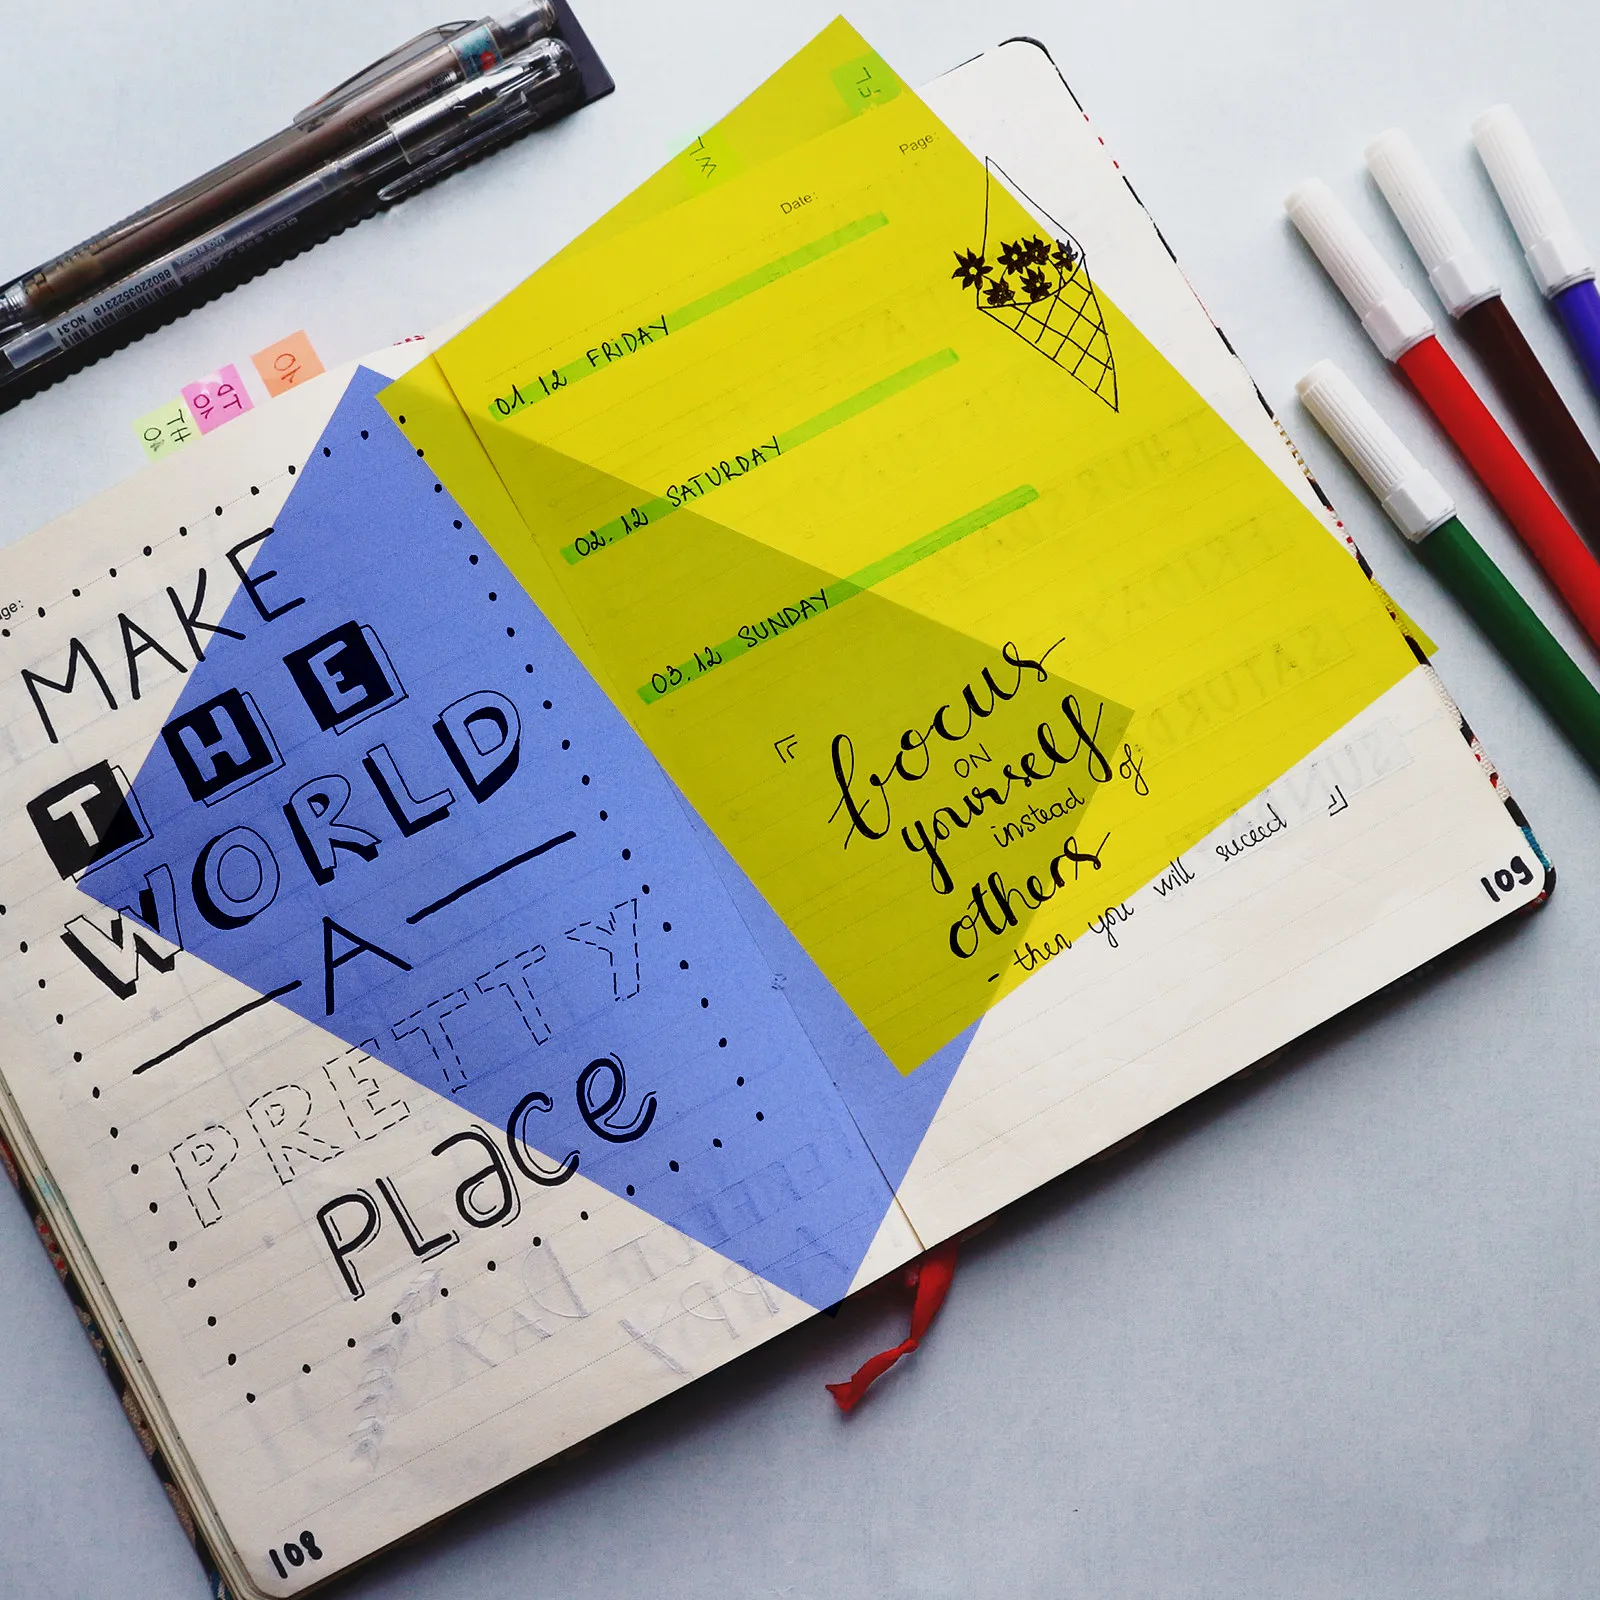 MAKE
THE
WORLD
A
PRETTY
PLace
108
Page:
Date:
01.12 FRIDAY
02.12 SATURDAY
03.12 SUNDAY
focus
ON
yourself
instead of
others
- then you will suceed
109
NO.31
8802203522318